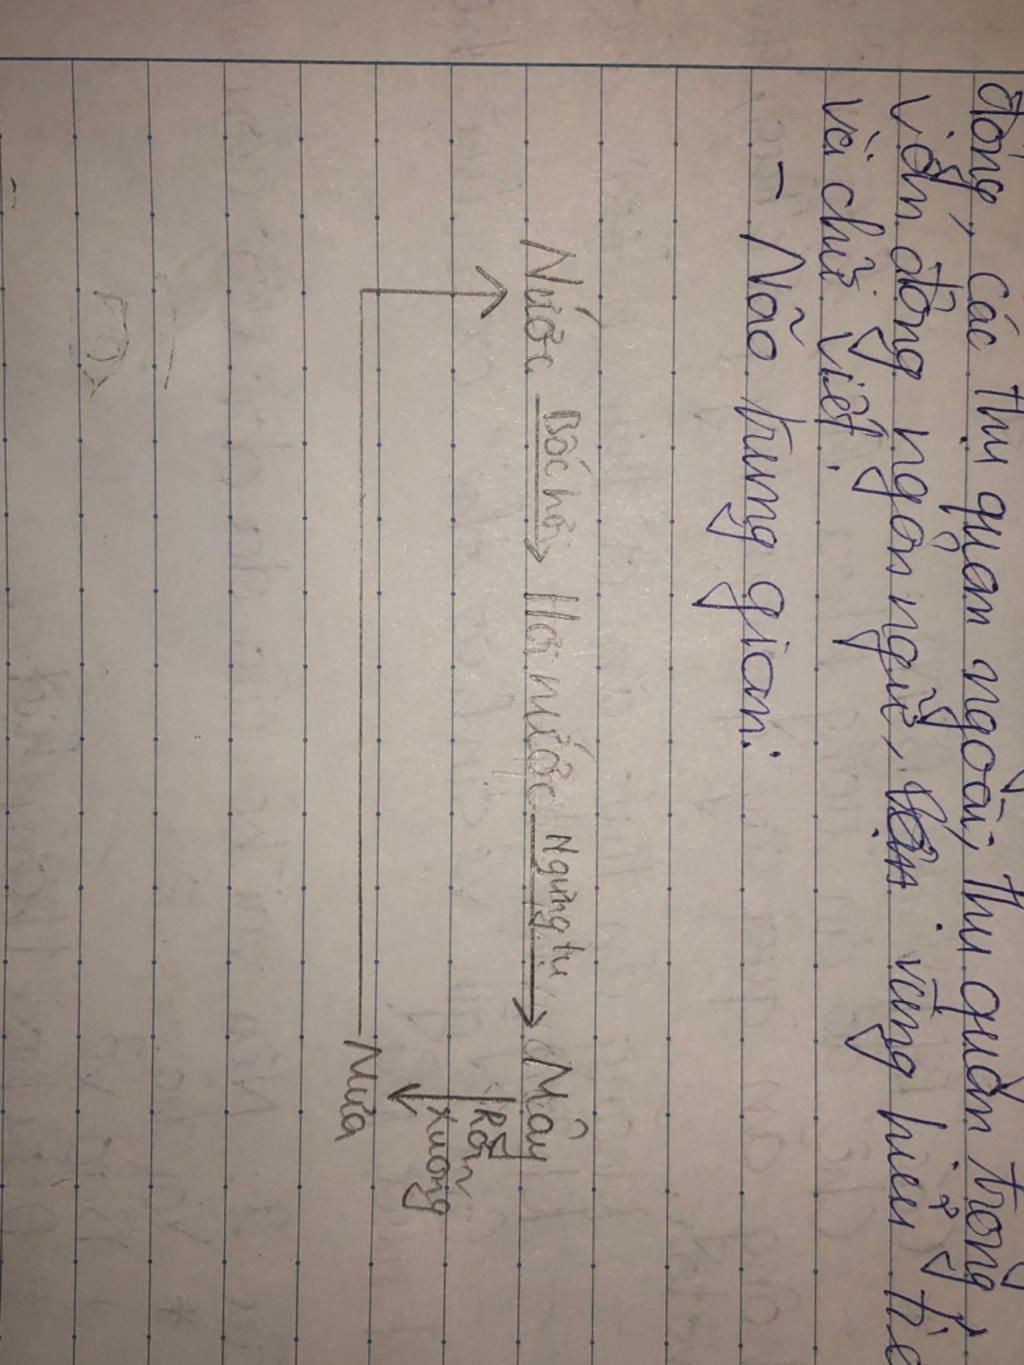 động, các thụ quan ngoài, thụ quan trong
vận động ngôn ngữ, vùng hiểu tiế
và chữ viết.
- Não trung gian:
Nước Bốc hơi Hơi nước Ngưng tụ Mây
Rơi
xuống
Mưa